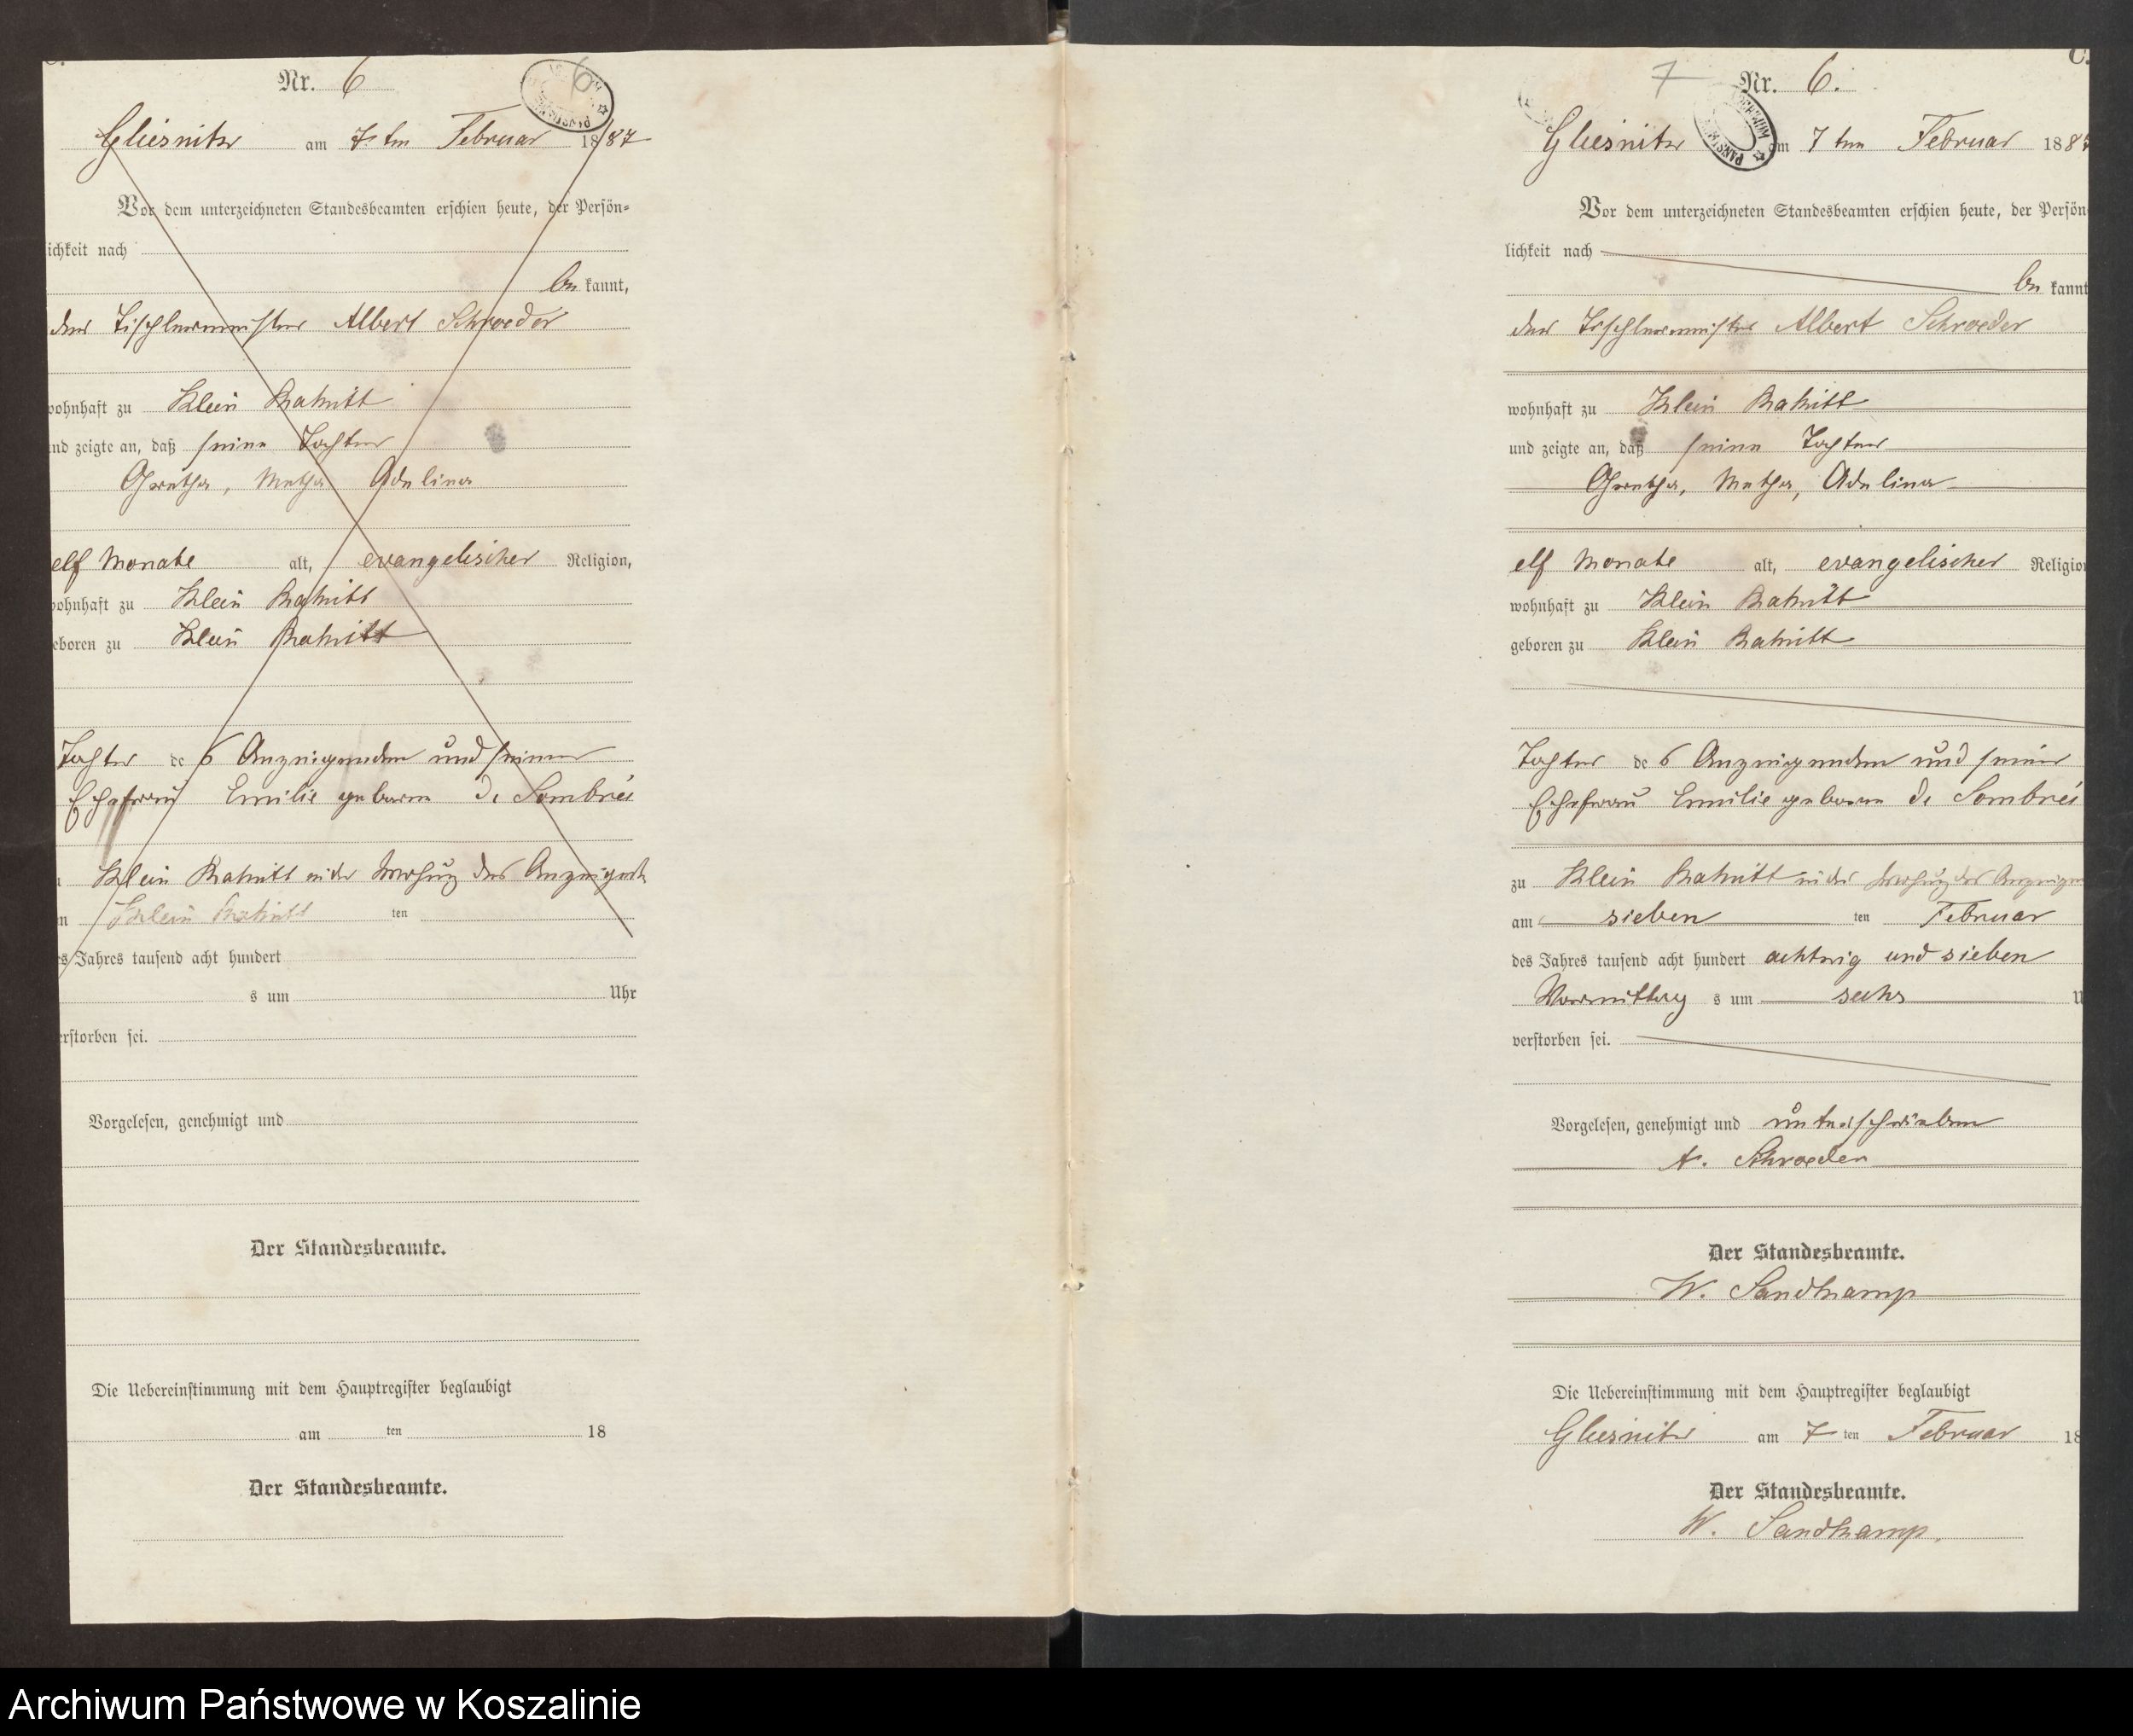 Nr. 6
6
Gliesnitz am 7 ten Februar 1887
Vor dem unterzeichneten Standesbeamten erschien heute, der Persön-
lichkeit nach
be kannt,
der Tischlermeister Albert Schroeder
wohnhaft zu Klein Rakitt
und zeigte an, daß seine Tochter
Gretha, Metha Adeline
elf Monate alt, evangelischer Religion,
wohnhaft zu Klein Rakitt
geboren zu Klein Rakitt
Tochter des Anzeigenden und seiner
Ehefrau Emilie geborene de Sombrée
Klein Rakitt in der Wohnung des Anzeigenden
Klein Rakitt ten
es Jahres tausend acht hundert
s um Uhr
erstorben sei.
Vorgelesen, genehmigt und
Der Standesbeamte.
Die Uebereinstimmung mit dem Hauptregister beglaubigt
am ten 18
Der Standesbeamte.
C.
7 Nr. 6.
Gliesnitz am 7 ten Februar 1887
Vor dem unterzeichneten Standesbeamten erschien heute, der Persön
lichkeit nach
be kannt
der Tischlermeister Albert Schroeder
wohnhaft zu Klein Rakitt
und zeigte an, daß seine Tochter
Gretha, Metha, Adeline
elf Monate alt, evangelischer Religion
wohnhaft zu Klein Rakitt
geboren zu Klein Rakitt
Tochter des Anzeigenden und seiner
Ehefrau Emilie geborene de Sombrée
zu Klein Rakitt in der Wohnung des Anzeigen
am sieben ten Februar
des Jahres tausend acht hundert achtzig und sieben
Vormittag s um sechs U
verstorben sei.
Vorgelesen, genehmigt und unterschrieben
A. Schroeder
Der Standesbeamte.
W. Sandkamp
Die Uebereinstimmung mit dem Hauptregister beglaubigt
Gliesnitz am 7 ten Februar 18
Der Standesbeamte.
W. Sandkamp.
Archiwum Państwowe w Koszalinie